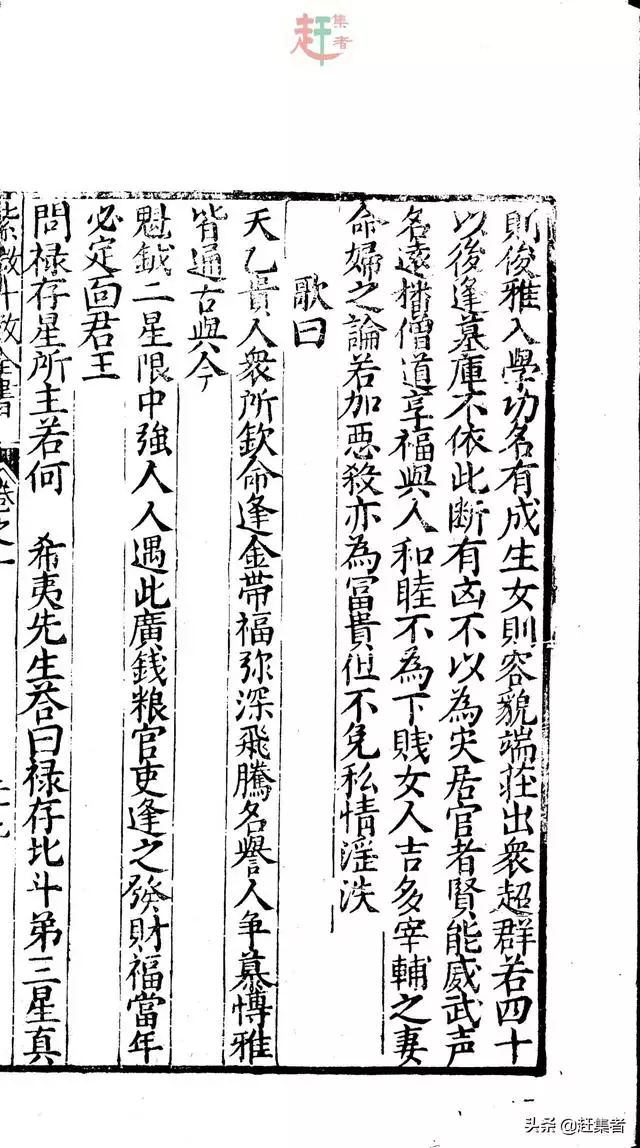 赶集者
則俊雅入學功名有成生女則容貌端莊出衆超群若四十
以後逢墓庫不依此斷有凶不以為灾居官者賢能威武声
名遠播僧道享福與人和睦不為下賎女人吉多宰輔之妻
命婦之論若加惡殺亦為冨貴但不免私情滛泆
歌曰
天乙貴人衆所欽命逢金帶福弥深飛騰名譽人争慕博雅
皆通古與今
魁鉞二星限中強人人遇此廣錢粮官吏逢之發財福當年
必定面君王
問禄存星所主若何　希夷先生荅曰禄存北斗弟三星真
紫微斗数全書 卷之一
头条 @赶集者